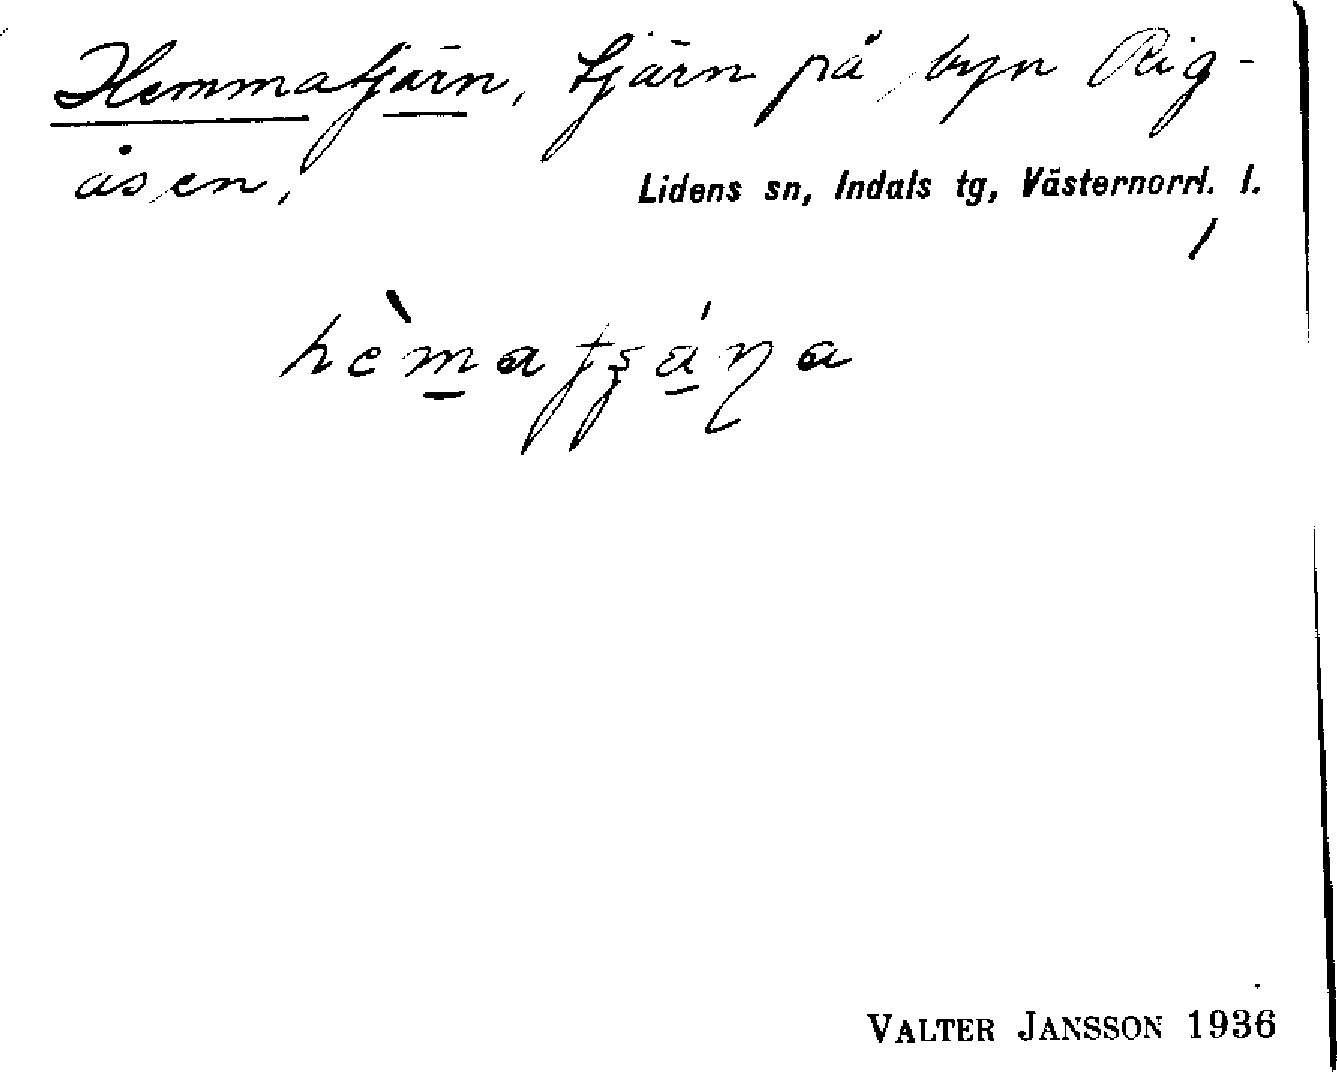 Hemmatjärn, tjärn på byn Rig-
åsen,
Lidens sn, Indals tg, Västernorrl. l.
VALTER JANSSON 1936